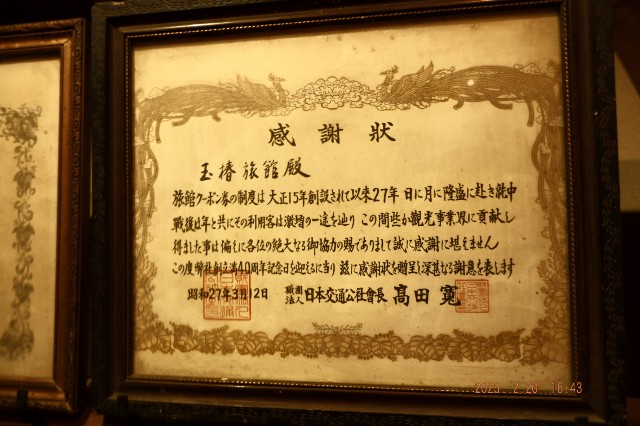 感謝状
玉椿旅館殿
旅館クーポン券の制度は大正15年創設されて以来27年 日に月に隆盛に赴き就中
戦後は年と共にその利用客は激増の一途を辿り この間些か観光事業界に貢献し
得ました事は偏えに各位の絶大なる御協力の賜でありまして誠に感謝に堪えません
この度弊社創立満40周年記念日を迎えるに当り 茲に感謝状を贈呈し深甚なる謝意を表します
昭和27年3月12日 財団法人日本交通公社會長 高田寛
2023. 2.20 16:43